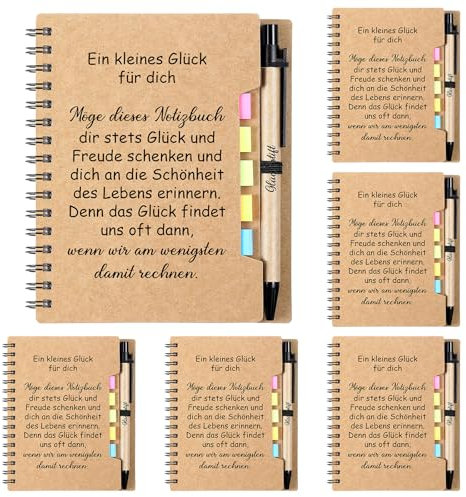 Ein kleines Glück
für dich
Möge dieses Notizbuch
dir stets Glück und
Freude schenken und
dich an die Schönheit
des Lebens erinnern.
Denn das Glück findet
uns oft dann,
wenn wir am wenigsten
damit rechnen.
Glücksstift
Ein kleines Glück
für dich
Möge dieses Notizbuch
dir stets Glück und
Freude schenken und
dich an die Schönheit
des Lebens erinnern.
Denn das Glück findet
uns oft dann,
wenn wir am wenigsten
damit rechnen.
Ein kleines Glück
für dich
Möge dieses Notizbuch
dir stets Glück und
Freude schenken und
dich an die Schönheit
des Lebens erinnern.
Denn das Glück findet
uns oft dann,
wenn wir am wenigsten
damit rechnen.
Ein kleines Glück
für dich
Möge dieses Notizbuch
dir stets Glück und
Freude schenken und
dich an die Schönheit
des Lebens erinnern.
Denn das Glück findet
uns oft dann,
wenn wir am wenigsten
damit rechnen.
Ein kleines Glück
für dich
Möge dieses Notizbuch
dir stets Glück und
Freude schenken und
dich an die Schönheit
des Lebens erinnern.
Denn das Glück findet
uns oft dann,
wenn wir am wenigsten
damit rechnen.
Ein kleines Glück
für dich
Möge dieses Notizbuch
dir stets Glück und
Freude schenken und
dich an die Schönheit
des Lebens erinnern.
Denn das Glück findet
uns oft dann,
wenn wir am wenigsten
damit rechnen.